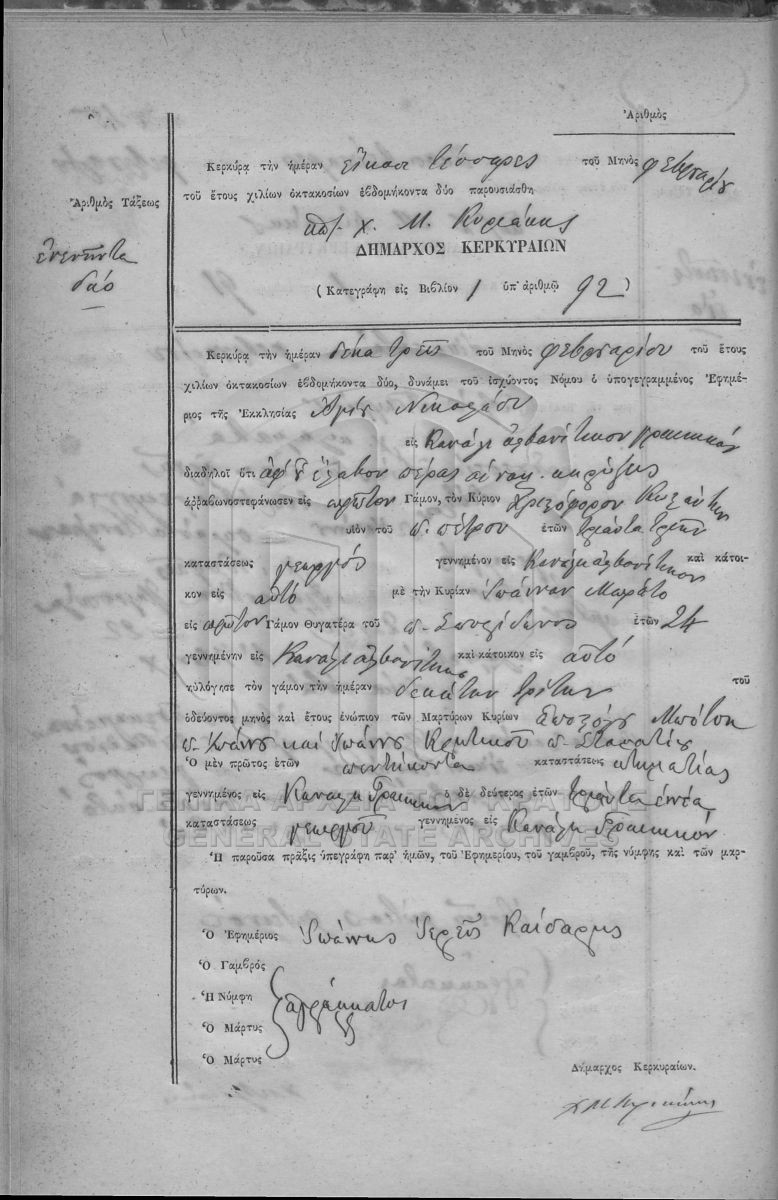 Ἀριθμὸς
Κερκύρα τὴν ἡμέραν εἴκοσι τέσσαρες τοῦ Μηνὸς φεβρουαρίου
τοῦ ἔτους χιλίων ὀκτακοσίων ἑβδομήκοντα δύο παρουσιάσθη
Χ. Μ. Κυριάκης
ΔΗΜΑΡΧΟΣ ΚΕΡΚΥΡΑΙΩΝ
(Κατεγράφη εἰς Βιβλίον 1 ὑπ' ἀριθμῷ 92)
Ἀριθμὸς Τάξεως
ἐνενῆντα
δύο
Κερκύρα τὴν ἡμέραν δέκα τρεῖς τοῦ Μηνὸς φεβρουαρίου τοῦ ἔτους
χιλίων ὀκτακοσίων ἑβδομήκοντα δύο, δυνάμει τοῦ ἰσχύοντος Νόμου ὁ ὑπογεγραμμένος Ἐφημέ-
ριος τῆς Ἐκκλησίας Ἁγίου Νικολάου
εἰς
διαδηλοῖ ὅτι ἀφ' οὗ ἔλαβον πέρας αἱ κηρύξεις
ἀρραβωνοστεφάνωσεν εἰς πρῶτον Γάμον, τὸν Κύριον
υἱὸν τοῦ π. Πέτρου ἐτῶν τριάντα
καταστάσεως γεωργός γεννημένον εἰς καὶ κάτοι-
κον εἰς αὐτό μὲ τὴν Κυρίαν Ἰωάνναν
εἰς πρῶτον Γάμον Θυγατέρα τοῦ π. Σπυρίδωνος ἐτῶν 24
γεννημένην εἰς καὶ κάτοικον εἰς αὐτό
ηὐλόγησε τὸν γάμον τὴν ἡμέραν δεκάτην τρίτην τοῦ
ὁδεύοντος μηνὸς καὶ ἔτους ἐνώπιον τῶν Μαρτύρων Κυρίων
καί Ἰωάννη Κρητικοῦ π. Σταματίου
Ὁ μὲν πρῶτος ἐτῶν πεντήκοντα καταστάσεως κτηματίας
γεννημένος εἰς ὁ δὲ δεύτερος ἐτῶν τριάντα ἐννέα
καταστάσεως γεωργοῦ γεννημένος εἰς
Ἡ παροῦσα πρᾶξις ὑπεγράφη παρ' ἡμῶν, τοῦ Ἐφημερίου, τοῦ γαμβροῦ, τῆς νύμφης καὶ τῶν μαρ-
τύρων.
Ὁ Ἐφημέριος Ἰωάννης Ἱερεὺς Καίσαρης
Ὁ Γαμβρός
Ἡ Νύμφη ἀγράμματοι
Ὁ Μάρτυς
Ὁ Μάρτυς
Δήμαρχος Κερκυραίων.
ΓΕΝΙΚΑ ΑΡΧΕΙΑ ΤΟΥ ΚΡΑΤΟΥΣ
GENERAL STATE ARCHIVES